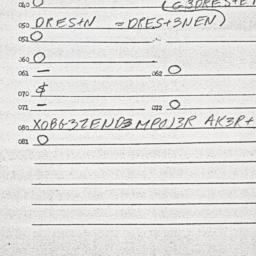 040 O (G3DRESTEI
050 DRES+N =DRES+3NEN)
051 O
060 O
061 — 062 O
070 $
071 — 072 O
080 XOBG3ZEND3MPOJ3R AK3R+
081 O